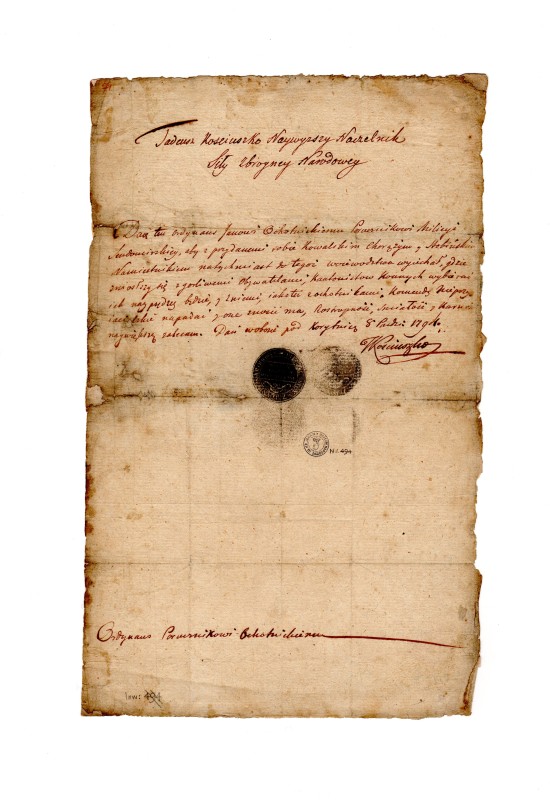 Tadeusz Kosciuszko Naywyzszy Naczelnik
Siły zbroyney Narodowey
Daię ten ordynans Janowi Ochotnickiemu Porucznikowi Milicyi
Sandomirskiey, aby z przydanemi sobie Kowalskim Chorążym, y
Namiestnikiem natychmiast do tegoż woiewodztwa wyiechał, gdzie
zniosłszy się z gorliwemi Obywatelami, kantonistow konnych wybierać
ich nayprędzey będzie, y z niemi, tudzież z ochotnikami, Komendy nieprzy-
iacielskie napadać y one znosić ma, Roztropność, śmiałość y karność
naywiększą zalecam. Dan w obozie pod Korytnicą 5 Paźdź. 1794.
TKosciuszko
N.I. 494
Ordynans Porucznikowi Ochotnickiemu
Inw: 494